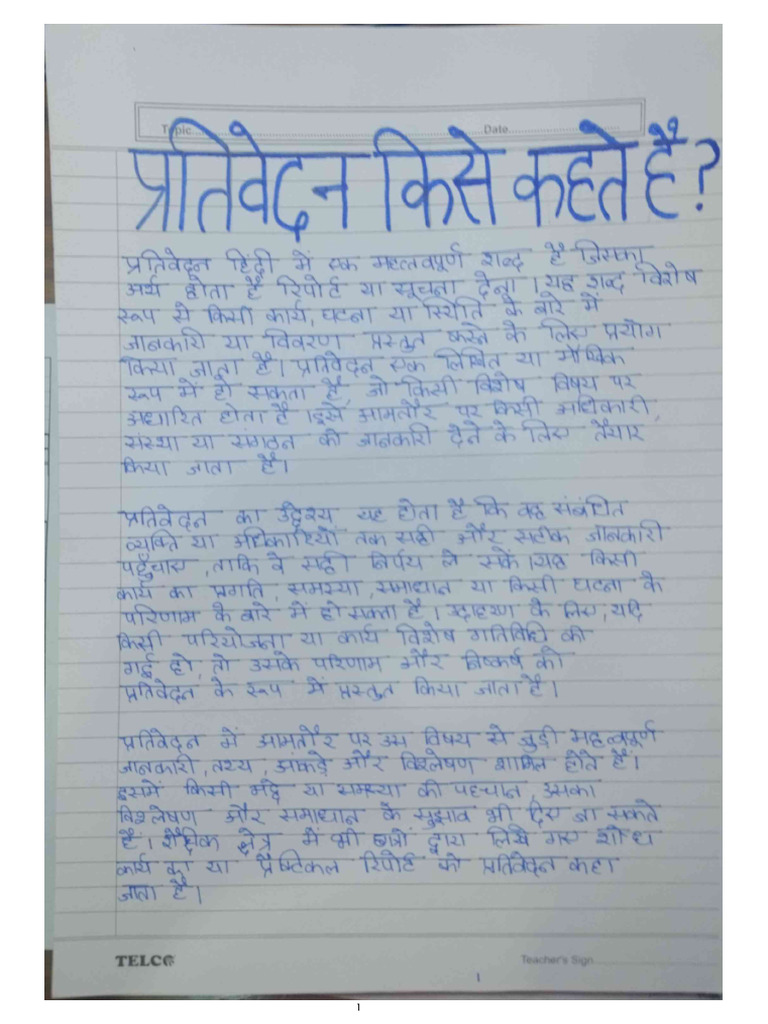 Topic Date
प्रतिवेदन किसे कहते है?
प्रतिवेदन हिंदी में एक महत्वपूर्ण शब्द है जिसका
अर्थ होता है रिपोर्ट या सूचना देना। यह शब्द विशेष
रूप से किसी कार्य, घटना या स्थिति के बारे में
जानकारी या विवरण प्रस्तुत करने के लिए प्रयोग
किया जाता है। प्रतिवेदन एक लिखित या मौखिक
रूप में हो सकता है, जो किसी विशेष विषय पर
आधारित होता है। इसे आमतौर पर किसी अधिकारी,
संस्था या संगठन को जानकारी देने के लिए तैयार
किया जाता है।
प्रतिवेदन का उद्देश्य यह होता है कि वह संबंधित
व्यक्ति या अधिकारियों तक सही और सटीक जानकारी
पहुँचाए, ताकि वे सही निर्णय ले सकें। यह किसी
कार्य का प्रगति, समस्या, समाधान या किसी घटना के
परिणाम के बारे में हो सकता है। उदाहरण के लिए, यदि
किसी परियोजना या कार्य विशेष गतिविधि की
गई हो, तो उसके परिणाम और निष्कर्ष को
प्रतिवेदन के रूप में प्रस्तुत किया जाता है।
प्रतिवेदन में आमतौर पर उस विषय से जुड़ी महत्वपूर्ण
जानकारी, तथ्य, आंकड़े और विश्लेषण शामिल होते हैं।
इसमें किसी मुद्दे या समस्या की पहचान, उसका
विश्लेषण और समाधान के सुझाव भी दिए जा सकते
हैं। शैक्षिक क्षेत्र में भी छात्रों द्वारा लिखे गए शोध
कार्य का या प्रैक्टिकल रिपोर्ट को प्रतिवेदन कहा
जाता है।
TELCO Teacher's Sign
1
1